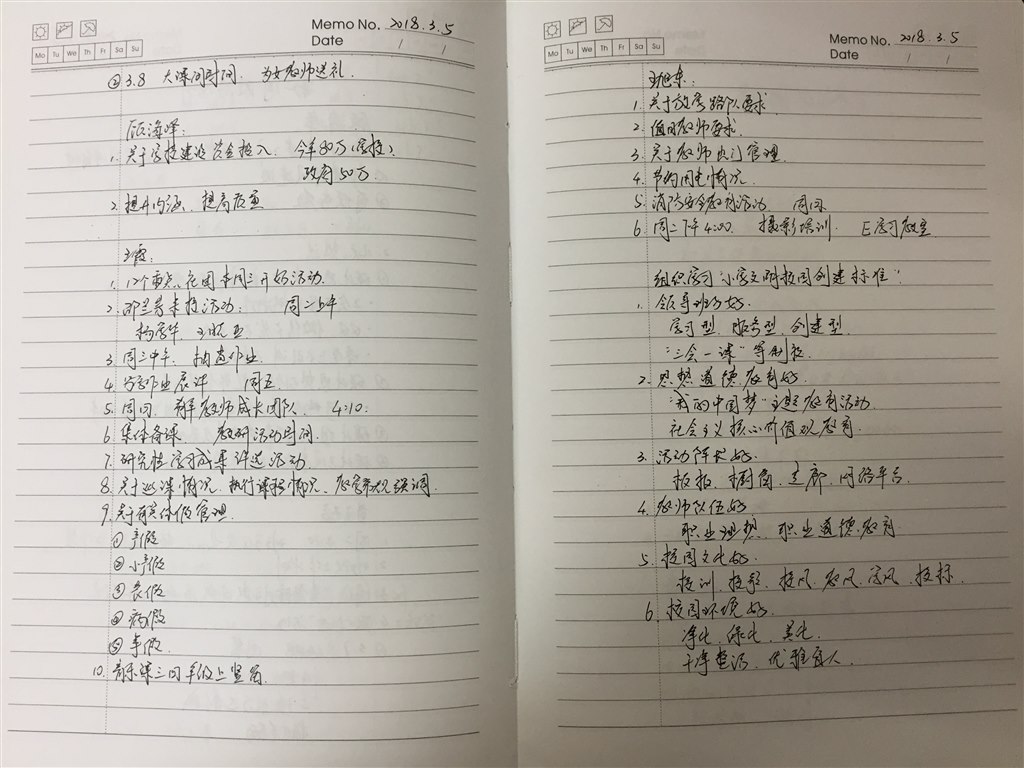 Memo No. 2018.3.5
Mo Tu We Th Fr Sa Su
Date / /
② 3.8 大课间时间. 为女教师送礼.
海峰:
1. 关于学校建设资金投入. 今年80万(学校)
政府50万
2. 提升内涵、提高质量
王霞:
1. 12个重点、花园本周三开好活动.
2. 来校活动: 周二上午
3. 周二中午、作业.
4. 作业展评 周五
5. 周四. 青年教师成长团队. 4:10.
6. 集体备课. 教研活动时间.
7. 研究性学习成果评选活动.
8. 关于巡课情况、执行课程情况、教学常规强调
9. 关于有关休假管理.
① 产假
② 小产假
③ 丧假
④ 病假
⑤ 事假.
10. 三四年级上
Memo No. 2018.3.5
Mo Tu We Th Fr Sa Su
Date / /
1. 关于放学路队要求
2. 值周教师要求.
3. 关于教师出门管理.
4. 节约用电情况.
5. 消防安全教育活动 周四.
6. 周二下午4:00. 摄影培训. E学习教室
组织学习“小学文明校园创建标准”
1. 领导班子好.
学习型、服务型、创建型.
“三会一课”等制度.
2. 思想道德教育好.
“我的中国梦”主题教育活动.
社会主义核心价值观教育.
3. 活动阵地好.
板报、橱窗、走廊、网络平台.
4. 教师队伍好
职业理想、职业道德教育
5. 校园文化好.
校训、校歌、校风、教风、学风、校标.
6. 校园环境好.
净化、绿化、美化.
干净整洁、优雅宜人.